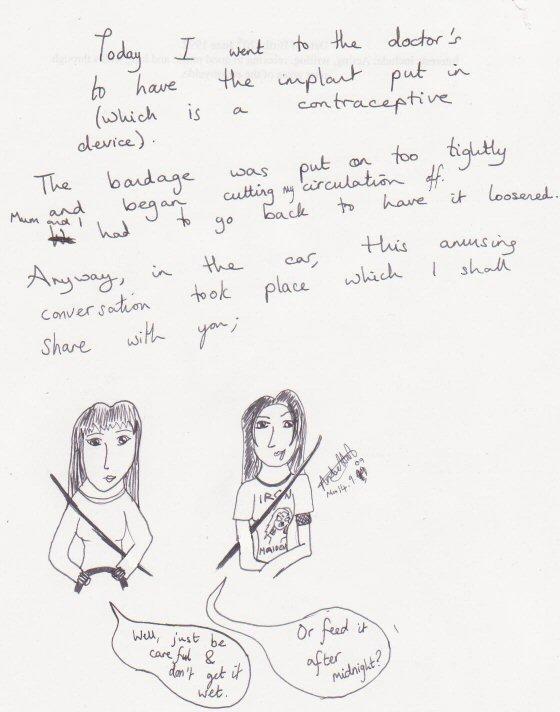 Today I went to the doctor's
to have the implant put in
(which is a contraceptive
device).
The bandage was put on too tightly
and began cutting my circulation off.
Mum and I had to go back to have it loosened.
Anyway, in the car, this amusing
conversation took place which I shall
share with you;
IRON
MAIDEN
Mon 14.9.09
Well, just be
careful &
don't get it
wet.
Or feed it
after
midnight?